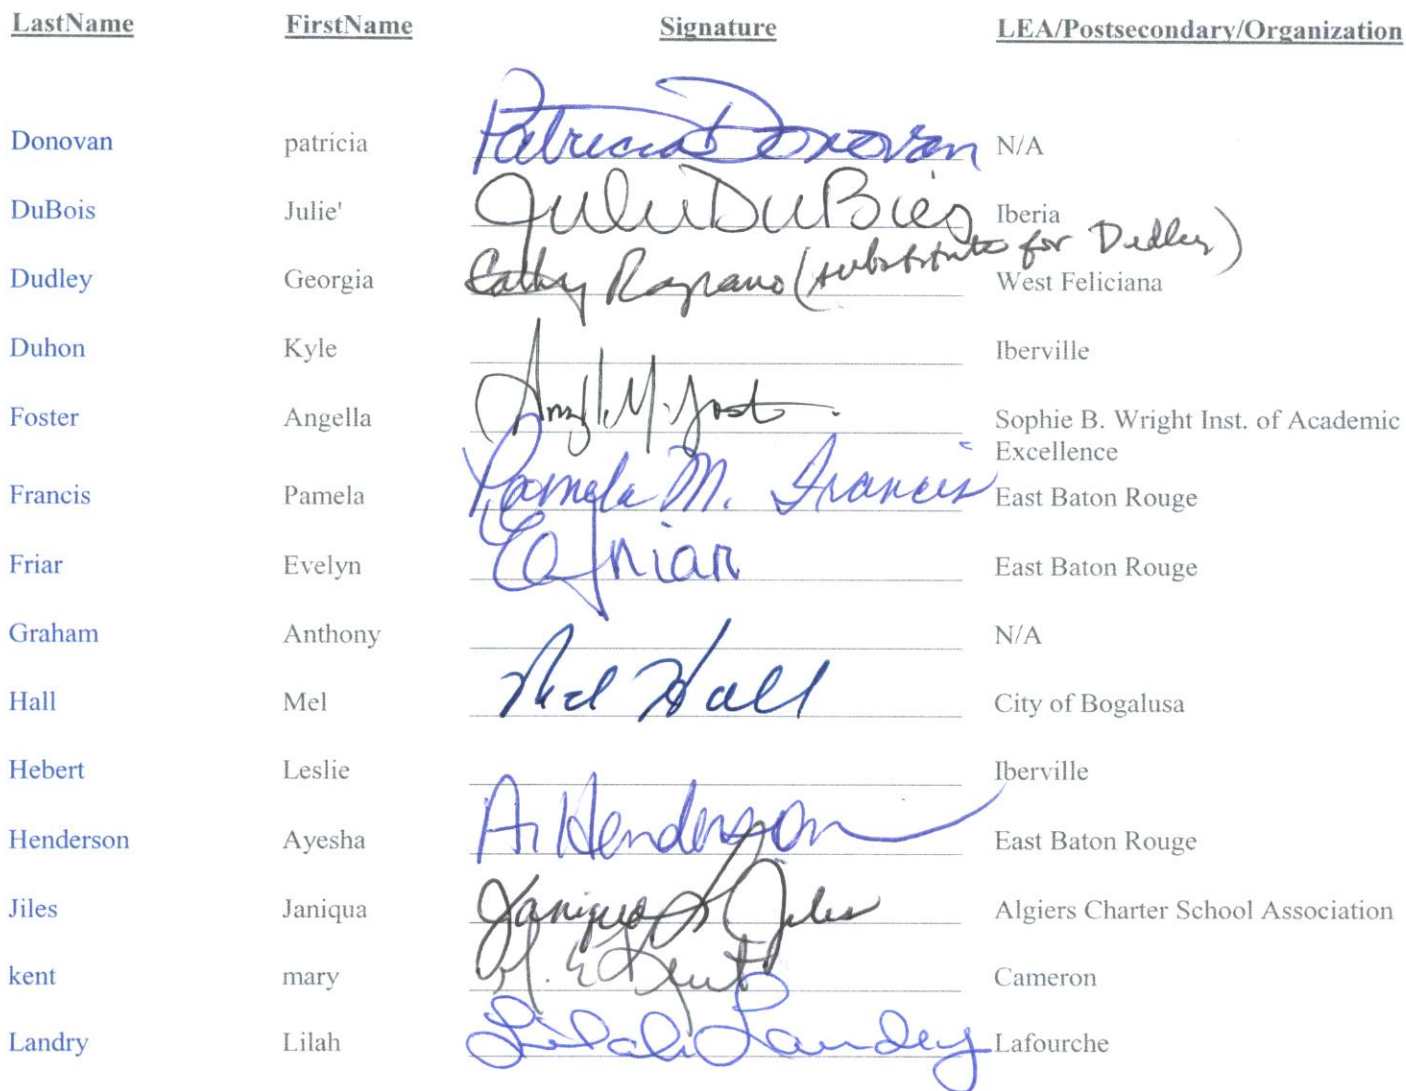 LastName FirstName Signature LEA/Postsecondary/Organization
Donovan patricia Patricia Donovan N/A
DuBois Julie' Julie DuBois Iberia
Dudley Georgia Cathy (substitute for Dudley) West Feliciana
Duhon Kyle Iberville
Foster Angella Sophie B. Wright Inst. of Academic
Excellence
Francis Pamela Pamela M. Francis East Baton Rouge
Friar Evelyn Friar East Baton Rouge
Graham Anthony N/A
Hall Mel Mel Hall City of Bogalusa
Hebert Leslie Iberville
Henderson Ayesha A. Henderson East Baton Rouge
Jiles Janiqua Janiqua Jiles Algiers Charter School Association
kent mary M. E Kent Cameron
Landry Lilah Lilah Landry Lafourche